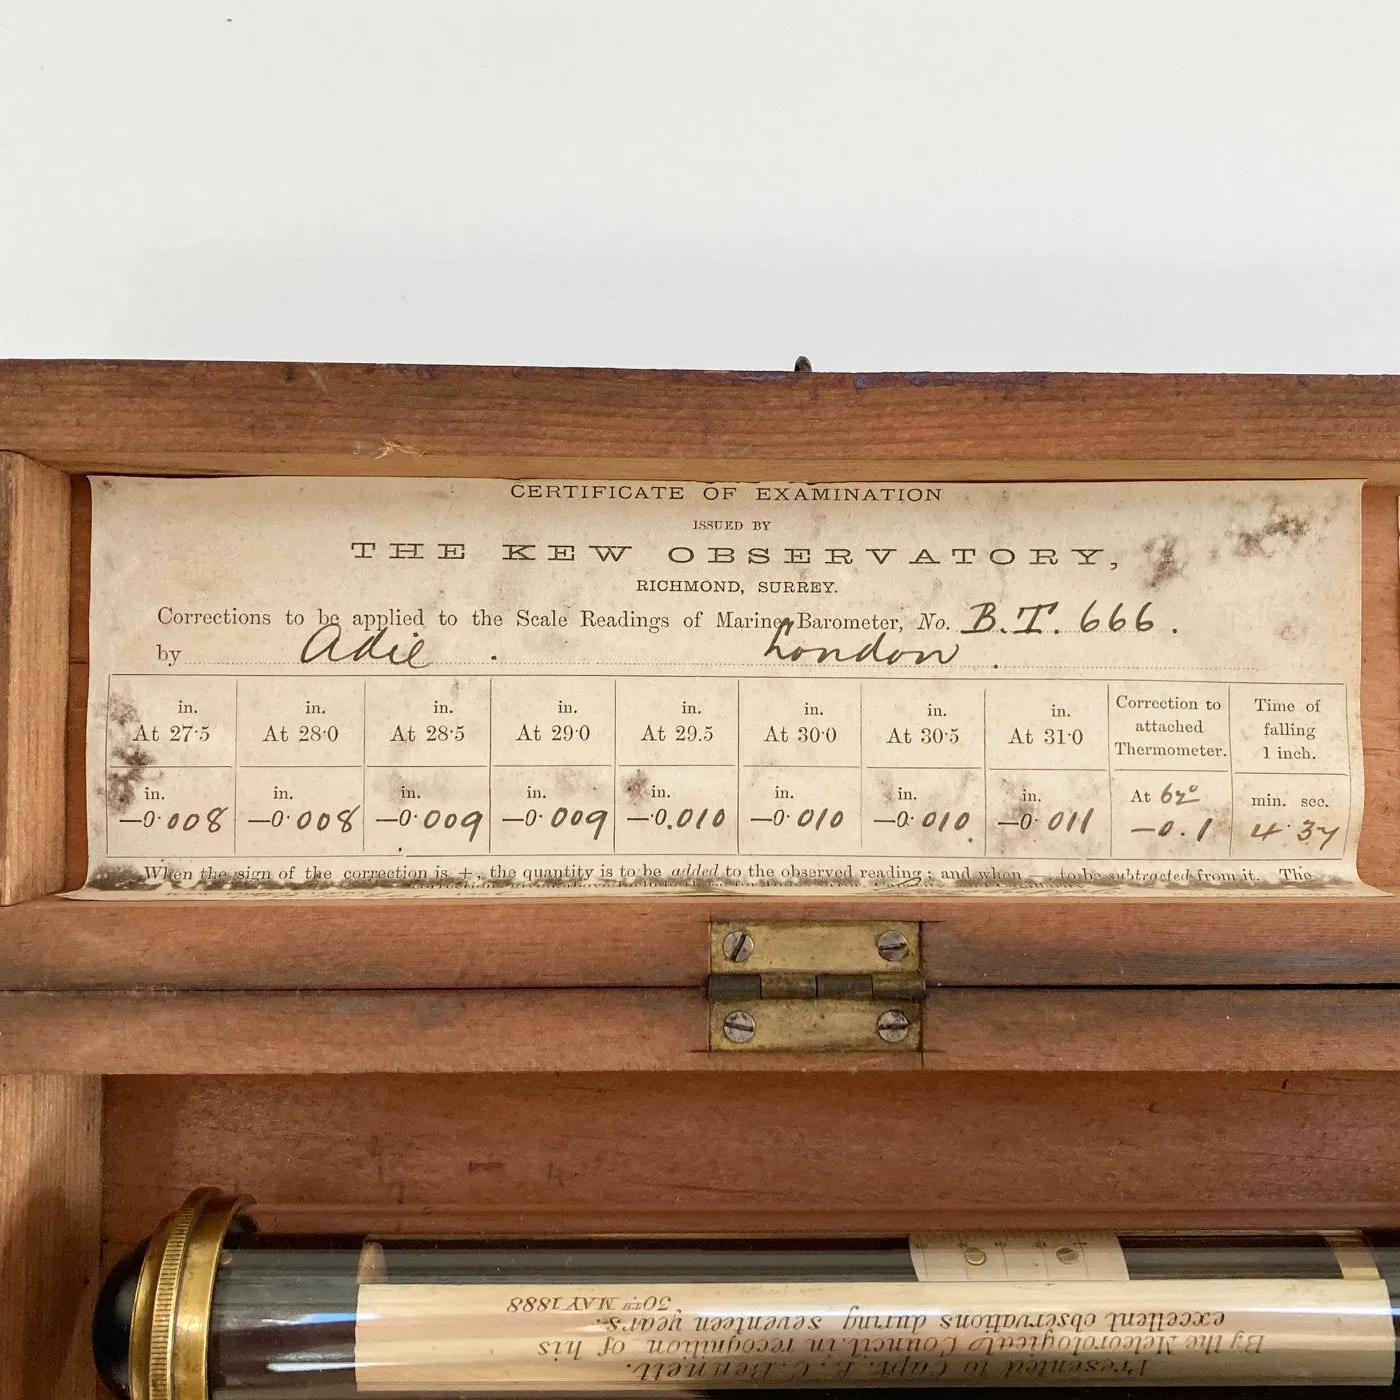 CERTIFICATE OF EXAMINATION
ISSUED BY
THE KEW OBSERVATORY,
RICHMOND, SURREY.
Corrections to be applied to the Scale Readings of Marine Barometer, No. B.T. 666.
by Adie. London.
in. in. in. in. in. in. in. in. Correction to attached Thermometer. Time of falling 1 inch.
At 27·5 At 28·0 At 28·5 At 29·0 At 29.5 At 30·0 At 30·5 At 31·0
in. in. in. in. in. in. in. in. At 62° min. sec.
—0·008 —0·008 —0·009 —0·009 —0.010 —0·010 —0·010 —0·011 —0.1 4·37
When the sign of the correction is +, the quantity is to be added to the observed reading; and when — to be subtracted from it. The
Presented to Capt. E. C. Bennett.
By the Meteorological Council, in recognition of his
excellent observations during seventeen years.
30TH MAY 1888